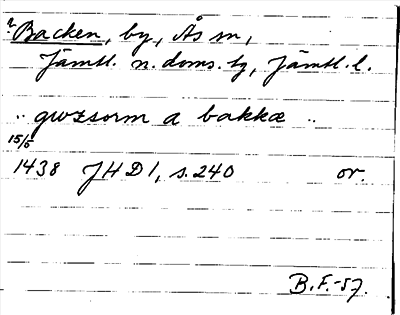 ? Backen, by, Ås sn,
Jämtl. n. doms. tg, Jämtl. l.
.. gwzsorm a bakkæ ..
15/5
1438 JHD 1, s. 240 or.
B.F.-57.